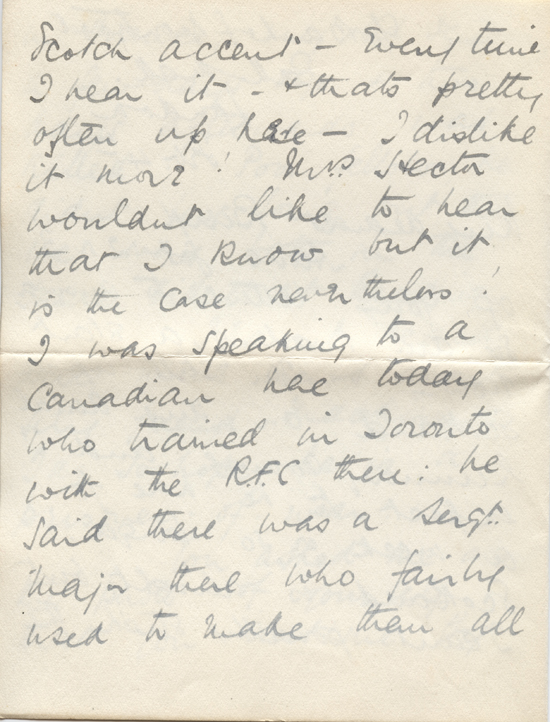 Scotch accent - Every time
I hear it - & thats pretty
often up here - I dislike
it more! Mrs Hector
wouldnt like to hear
that I know but it
is the case nevertheless!
I was speaking to a
Canadian here today
who trained in Toronto
with the R.F.C there: he
said there was a Sergt.
Major there who fairly
used to make them all